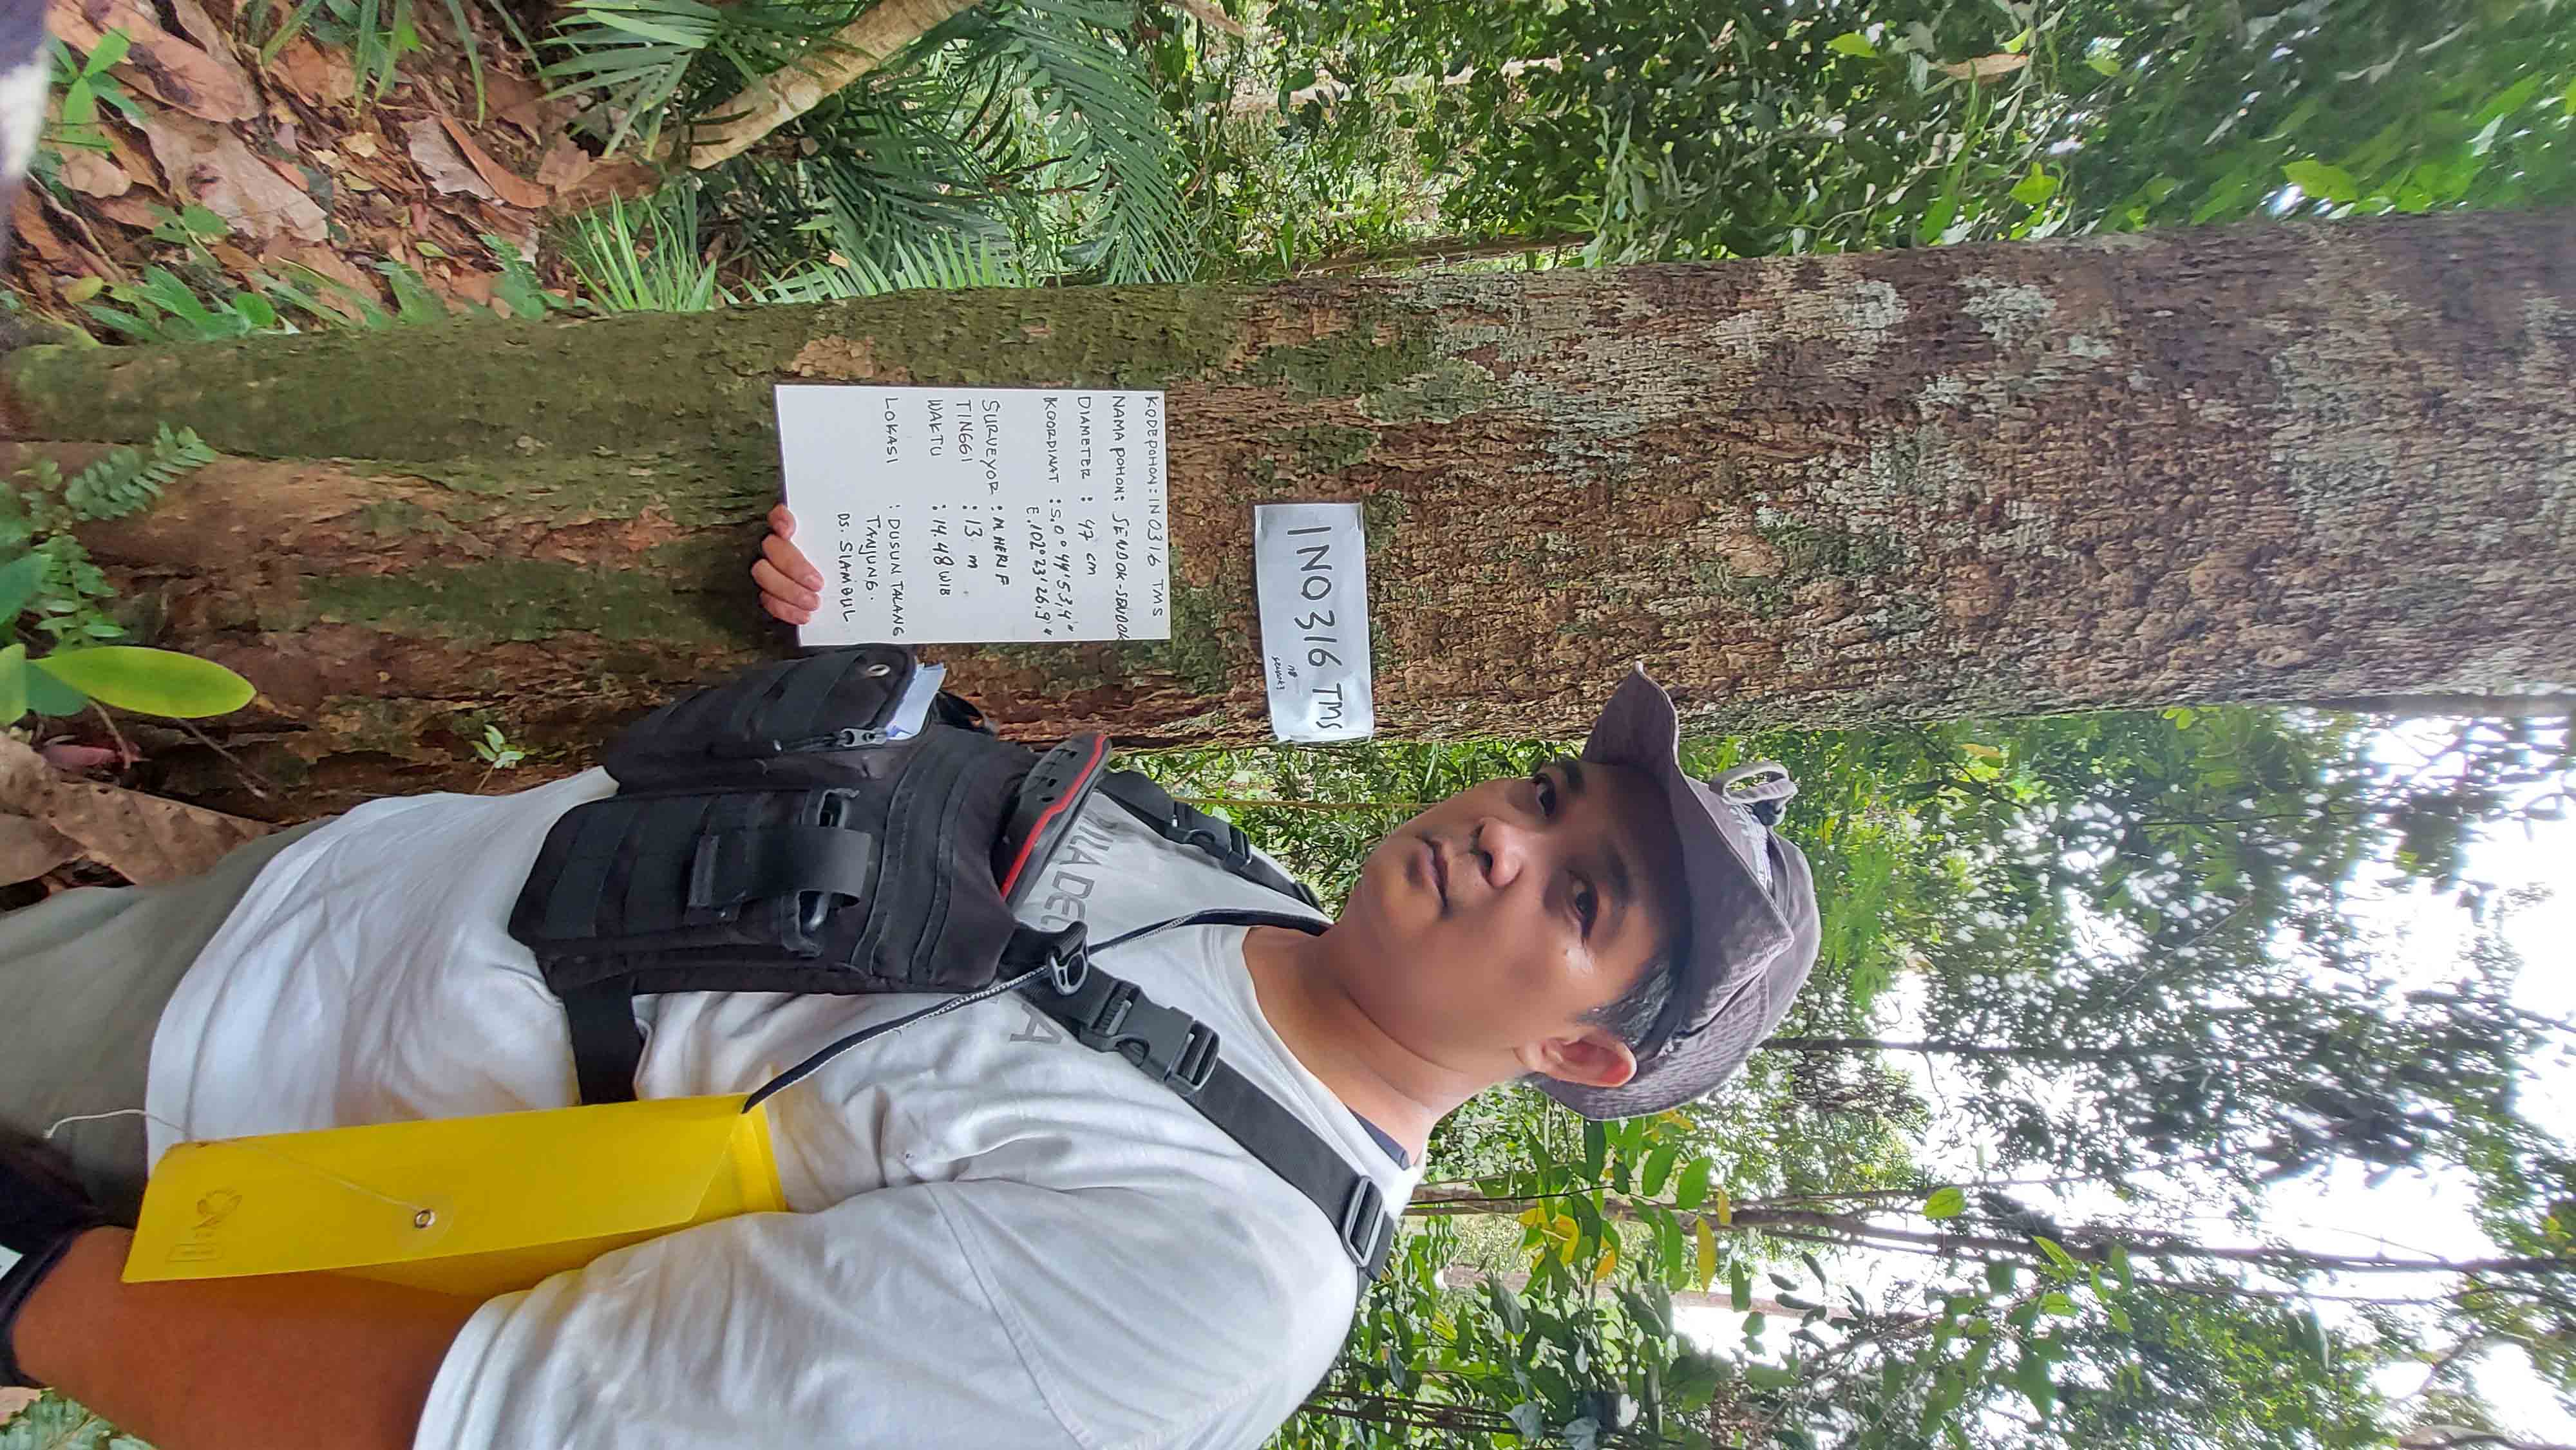 INO316 TMS
KODE POHON : INO316 TMS
NAMA POHON : SENDOK-SENDOK
DIAMETER : 47 cm
KOORDINAT : S.0° 44' 53,4"
E.102° 23' 26.9"
SURVEYOR : M HERI F
TINGGI : 13 m
WAKTU : 14.48 WIB
LOKASI : DUSUN TALANG
TANJUNG.
DS. SIAMBUL